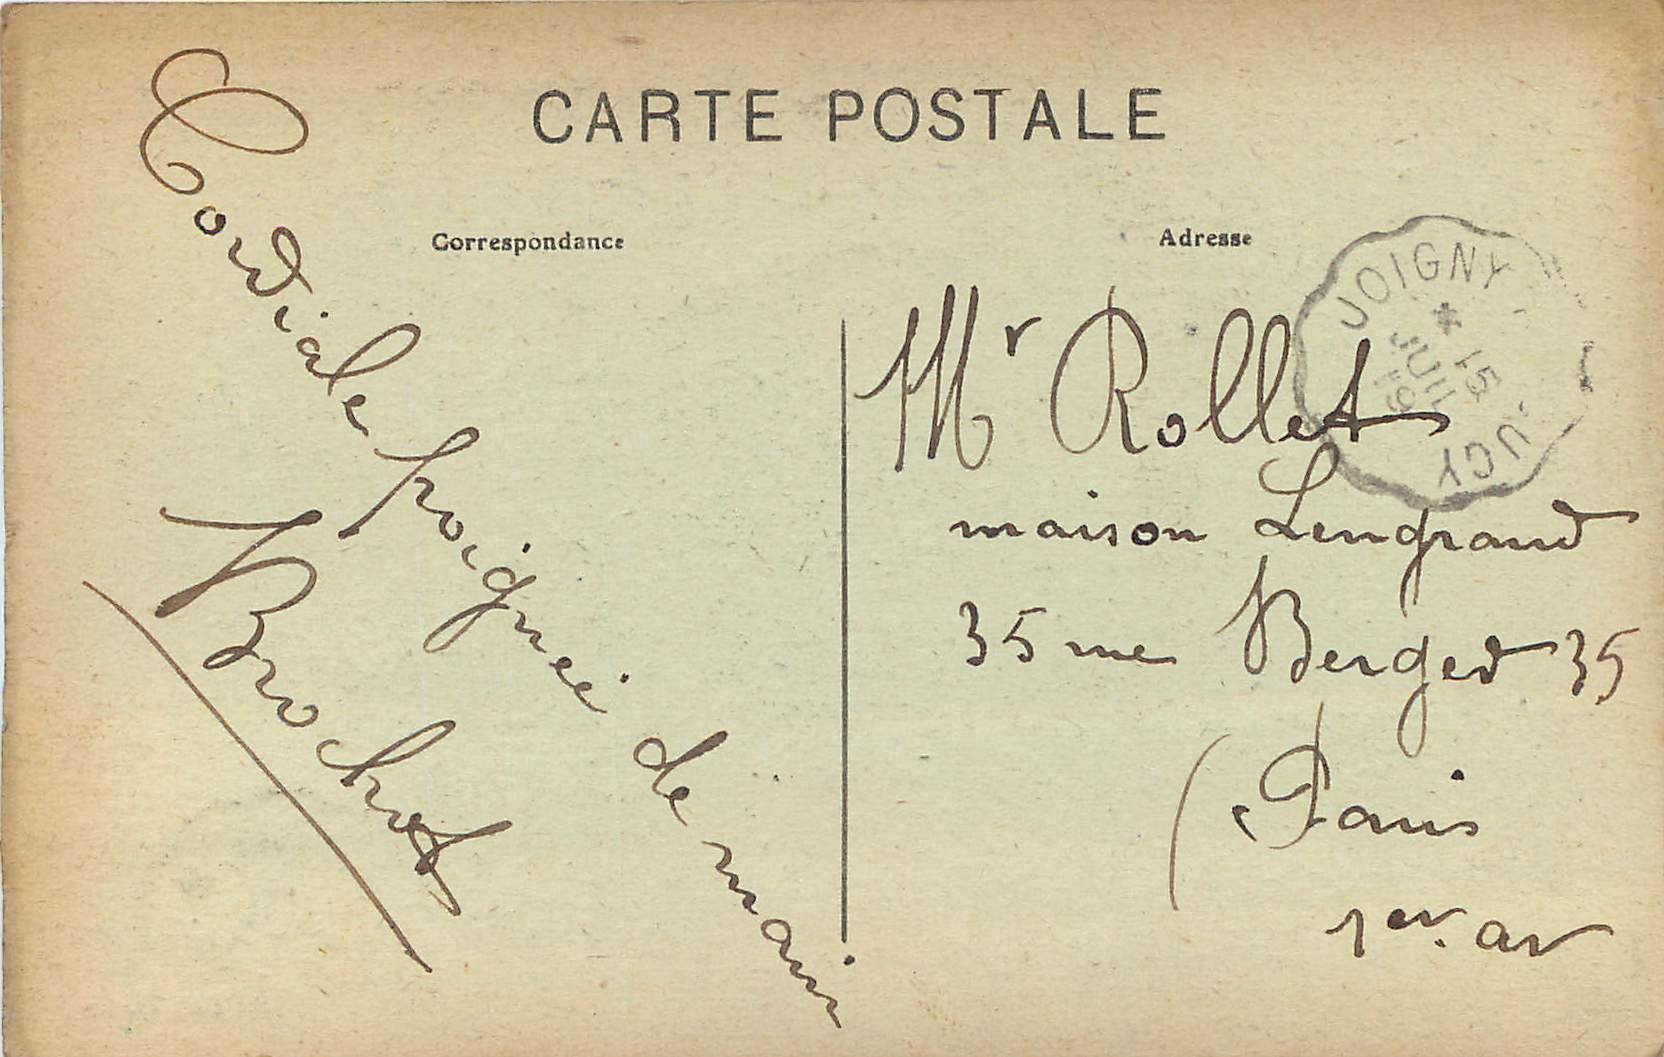 CARTE POSTALE
Correspondance
Adresse
Cordiale poignée de main
Brochet
Mr Rollet
maison Lengrand
35 rue Berger 35
Paris
1er. ar
JOIGNY
*
15
JUIL
19
UCY